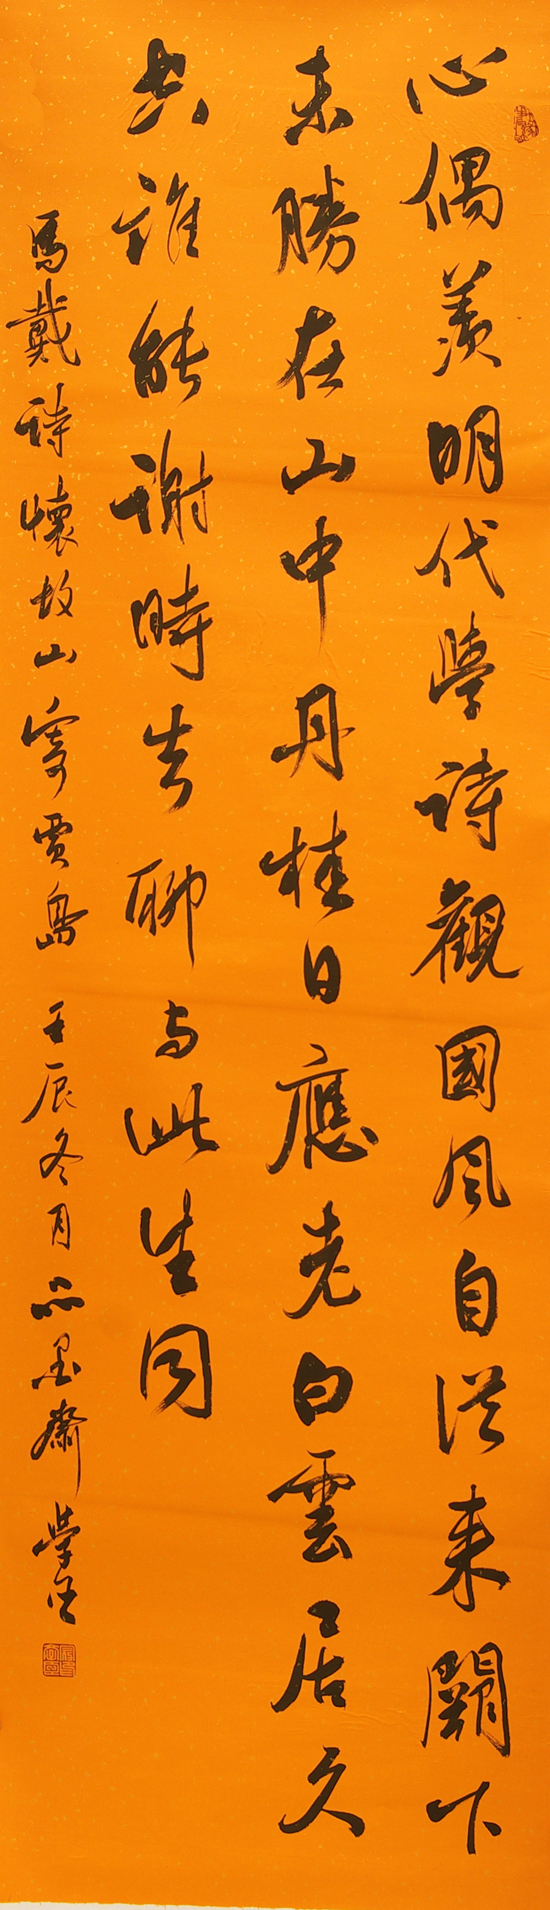 心偶羡明代學詩觀國風自從来闕下
未勝在山中丹桂日應老白雲居久
空誰能謝時去聊与此生同
馬戴詩懷故山寄賈島 壬辰冬月品墨齋學